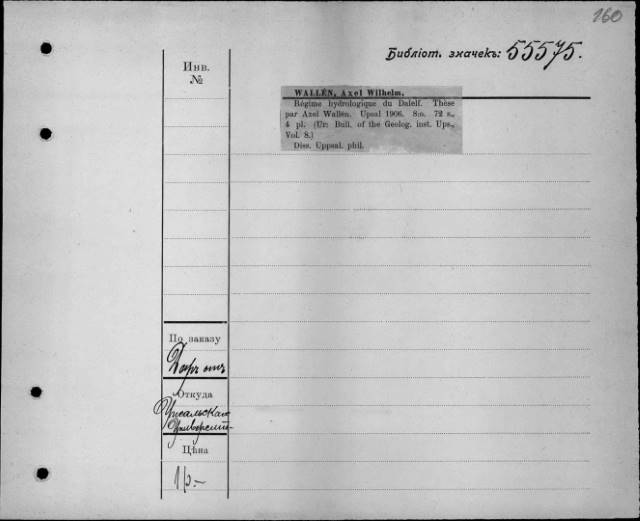 160
Библіот. значекъ: 55575.
Инв.
№
WALLÉN, Axel Wilhelm.
Régime hydrologique du Dalelf. Thèse
par Axel Wallén. Upsal 1906. 8:o. 72 s.,
4 pl. (Ur: Bull. of the Geolog. inst. Ups.,
Vol. 8.)
Diss. Uppsal. phil.
По заказу
Даръ отъ
Откуда
Упсальскаго
Университ.
Цѣна
1 р. –